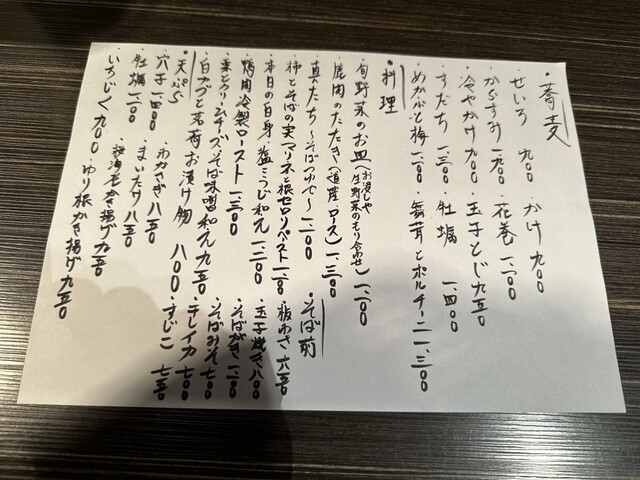 ・蕎麦
・せいろ 九〇〇 ・かけ 九〇〇
・からすみ 一、九〇〇 ・花巻 一、一〇〇
・冷やかけ 九〇〇 ・玉子とじ 九五〇
・すだち 一、三〇〇 ・牡蠣 一、四〇〇
・めかぶと梅 一、一〇〇 ・舞茸とポルチーニ 一、三〇〇
・料理
・旬野菜のお皿(お浸しや生野菜のもり合わせ) 一、二〇〇
・鹿肉のたたき(道産・ロース) 一、三〇〇
・真たち〜そばつゆで〜 一、二〇〇
・柿とそばの実マリネと根セロリペースト 一、一〇〇
・本日の白身・塩こうじ和え 一、二〇〇
・鴨肉冷製ロースト 一、三〇〇
・栗とクリームチーズそば味噌和え 九五〇
・白ナヅと茗荷お漬け物 八〇〇
・そば前
・板わさ 六五〇
・玉子焼き 八〇〇
・そばがき 一、一〇〇
・そばみそ 七〇〇
・チレイカ 七〇〇
・すじこ 七五〇
・天ぷら
・穴子 一、四〇〇 ・わかさぎ 八五〇
・牡蠣 一、一〇〇 ・まいたけ 八五〇
・いちじく 九〇〇 ・かき揚げ 九五〇
・ゆり根かき揚げ 九五〇